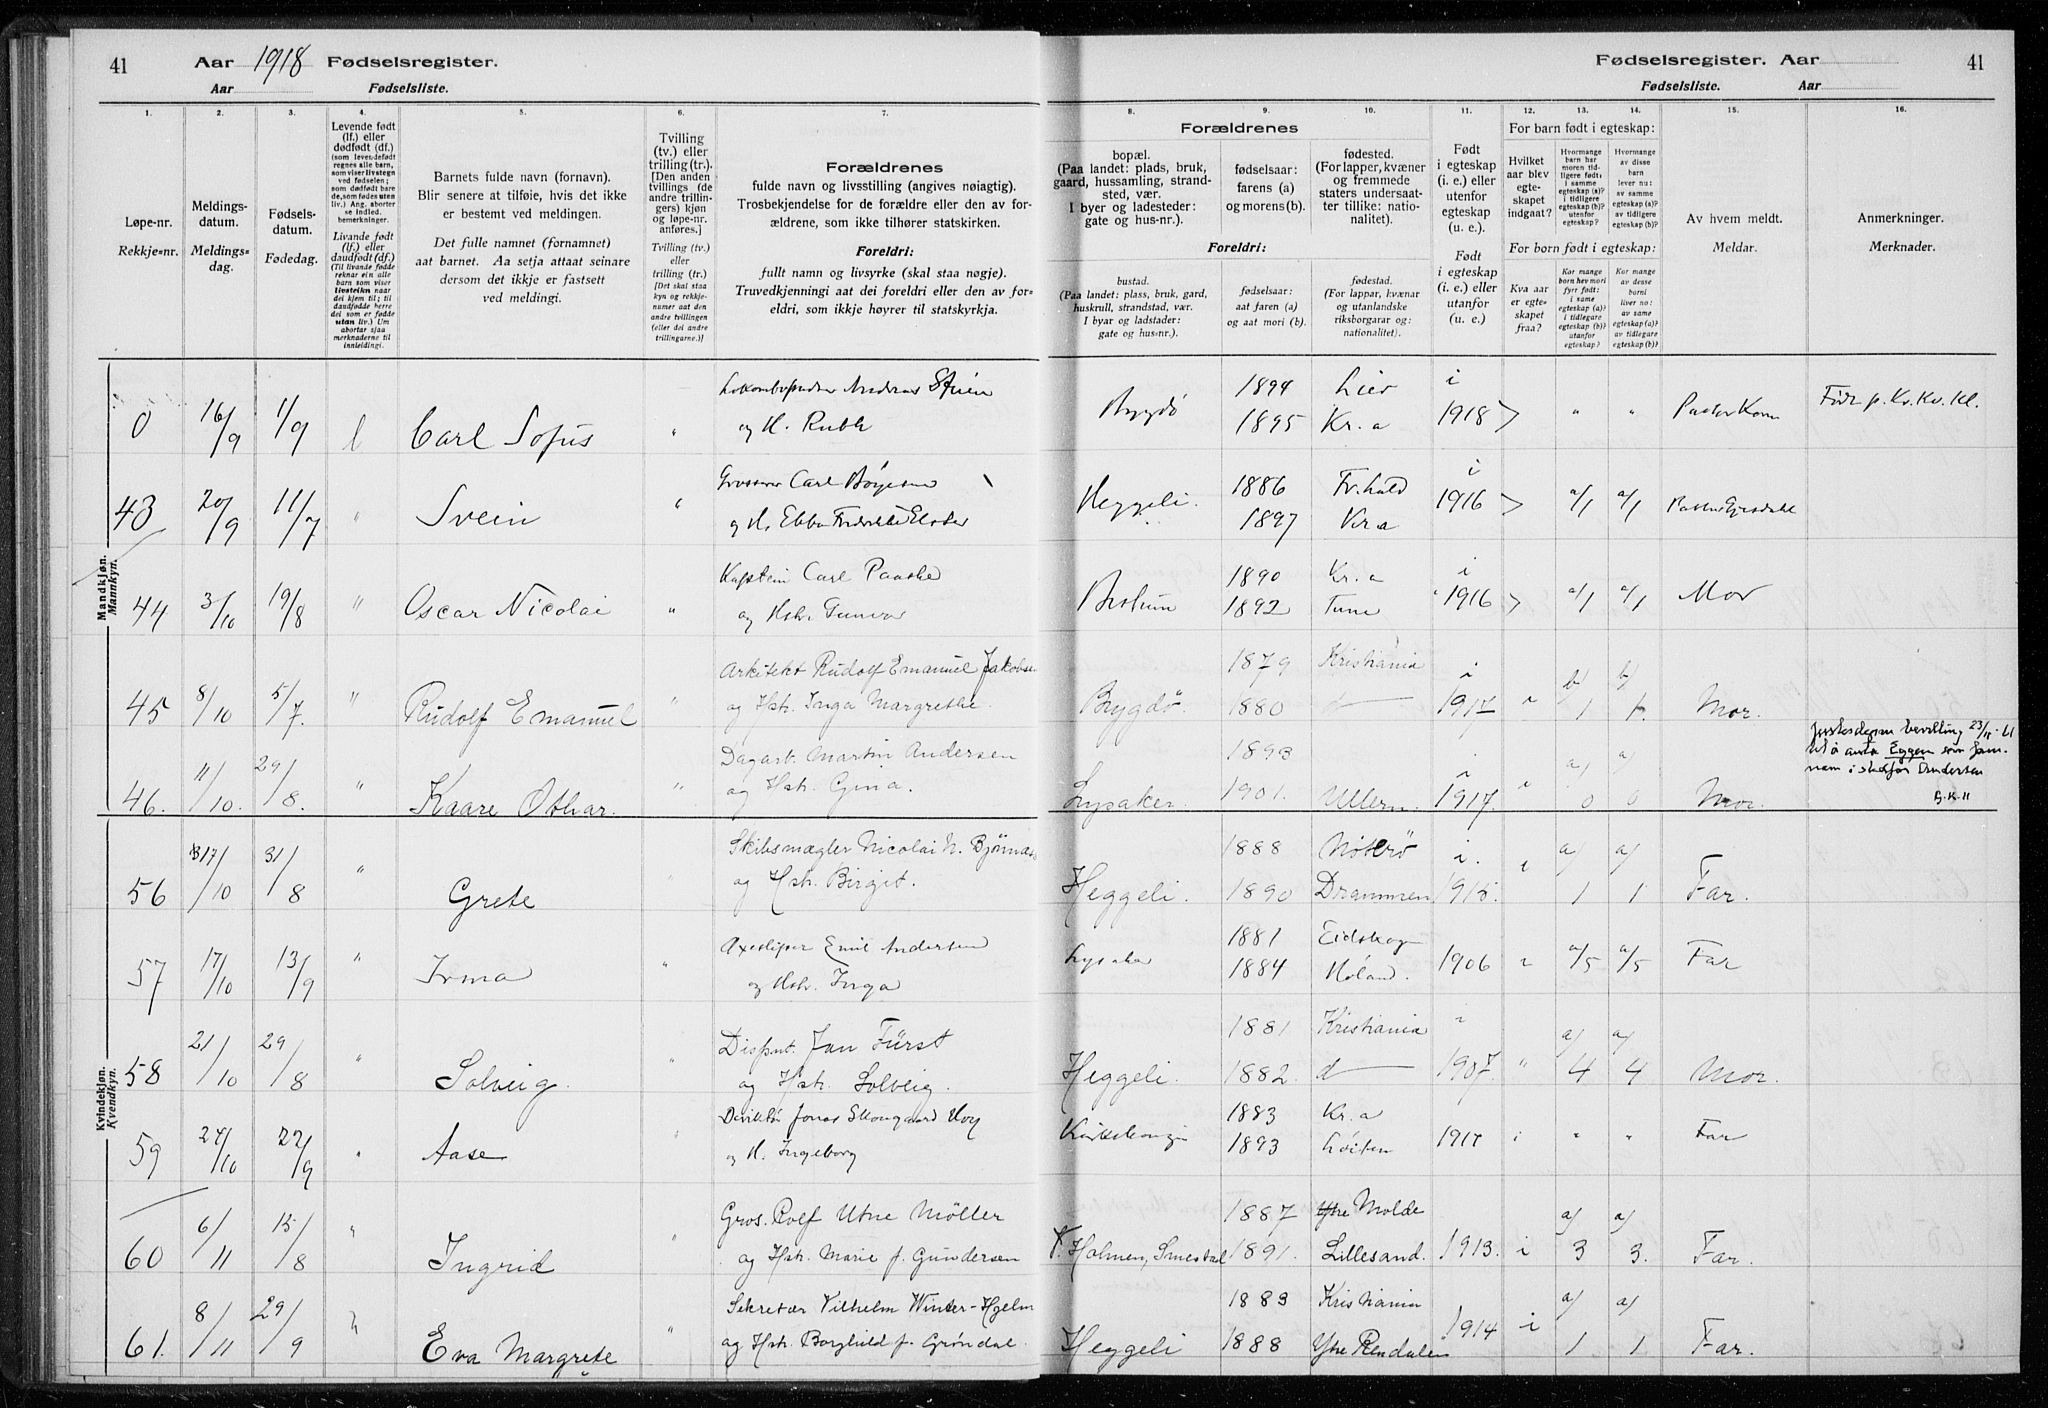 41 Aar 1918 Fødselsregister.
Aar Fødselsliste.
Fødselsregister. Aar 41
Fødselsliste. Aar
1. 2. 3. 4. 5. 6. 7. 8. 9. 10. 11. 12. 13. 14. 15. 16.
Løpe-nr.
Rekkje-nr.
Meldings-
datum.
Meldings-
dag.
Fødsels-
datum.
Fødedag.
Levende født
(lf.) eller
dødfødt (df.)
(som levendefødt
regnes alle barn,
som viser livstegn
ved fødselen;
som dødfødt bare
de, som fødes uten
liv.) Ang. aborter
se Indled.
bemerkninger.
Livande født
(lf.) eller
daudfødt (df.)
(Til livande fødde
reknar ein alle
barn som viser
livsteikn naar
dei kjem til; til
daudfødde berre
dei som er fødde
utan liv.) Um
abortar sjaa
merknaderne til
innleidingi.
Barnets fulde navn (fornavn).
Blir senere at tilføie, hvis det ikke
er bestemt ved meldingen.
Det fulle namnet (fornamnet)
aat barnet. Aa setja attaat seinare
dersom det ikkje er fastsett
ved meldingi.
Tvilling
(tv.) eller
trilling (tr.).
[Den anden
tvillings (de
andre trillin-
gers) kjøn
og løpe-nr.
anføres.]
Tvilling (tv.)
eller
trilling (tr.)
[Det skal staa
kyn og rekkje-
numer aat den
andre tvillingen
(eller dei andre
trillingarne.)]
Forældrenes
fulde navn og livsstilling (angives nøiagtig).
Trosbekjendelse for de forældre eller den av for-
ældrene, som ikke tilhører statskirken.
Foreldri:
fullt namn og livsyrke (skal staa nøgje).
Truvedkjenningi aat dei foreldri eller den av for-
eldri, som ikkje høyrer til statskyrkja.
Forældrenes
bopæl.
(Paa landet: plads, bruk,
gaard, hussamling, strand-
sted, vær.
I byer og ladesteder:
gate og hus-nr.).
fødselsaar:
farens (a)
og morens (b).
fødested.
(For lapper, kvæner
og fremmede
staters undersaat-
ter tillike: natio-
nalitet).
Foreldri:
bustad.
(Paa landet: plass, bruk, gard,
huskrull, strandstad, vær.
I byar og ladstader:
gate og hus-nr.).
fødselsaar:
aat faren (a)
og aat mori (b).
fødestad.
(For lappar, kvænar
og utanlandske
riksborgarar og:
nationalitet).
Født
i egteskap
(i. e.) eller
utenfor
egteskap
(u. e.).
Født
i egteskap
(i. e.) eller
utanfor
(u. e.)
For barn født i egteskap:
Hvilket
aar blev
egte-
skapet
indgaat?
Hvormange
barn har
moren tid-
ligere født:
i samme
egteskap (a)?
i tidligere
egteskap (b)?
utenfor
egteskap?
Hvormange
av disse
barn
lever nu:
av samme
egteskap (a)?
av tidligere
egteskap (b)?
For born født i egteskap:
Kva aar
er egte-
skapet
fraa?
Kor mange
born hev mori
fyrr født:
i same
egteskap (a)?
i tidlegare
egteskap (b)?
utanfor
egteskap?
Kor mange
av desse
borni
liver no:
av same
egteskap (a)?
av tidlegare
egteskap (b)?
Av hvem meldt.
Meldar.
Anmerkninger.
Merknader.
Mandkjøn.
Mannkyn.
0 16/9 1/9 l Carl Sofus " Andreas Stuien
og H. Ruth
Bygdø 1894 Lier i
1895 Kr.a 1918 " " Pastor Korn Født p. Kr. Kv. Kl.
43 20/9 11/7 " Svein " Grosserer Carl Bøyesen
og H. Ebba Fredrikke Elster
Heggeli. 1886 Fr.hald i
1897 Kr.a 1916 a/1 a/1 Pastor Gjesdahl
44 3/10 19/8 " Oscar Nicolai " Kaptein Carl Paaske
og Hstr. Gunvor
Bestum 1890 Kr.a i
1892 Tune 1916 a/1 a/1 Mor
45 8/10 5/7. " Rudolf Emanuel " Arkitekt Rudolf Emanuel Jakobse
og Hstr. Inga Margrethe.
Bygdø. 1879 Kristiania i b/ b/
1880 d— 1917 " 1 1. Mor.
46. 11/10. 29/8. " Kaare Othar. " Dagarb. Martin Andersen
og Hstr. Gina.
Lysaker. 1893 a/ a/
1901. Ullern. 1917. " 0 0 Mor.
bevilling 23/11-21
til å anta Eggen som fam.
nam i stedfor Andersen
Kvindekjøn.
Kvendkyn.
56 17/10 31/8 " Grete " Skibsmægler Nicolai N. Bjørnæs
og Hstr. Birgit.
Heggeli. 1888 Nøterø i. a/ a/
1890 Drammen 1915. 1 1 Far.
57 17/10 13/9 " Irma " Axesliper Emil Andersen
og Hstr. Inga
Lysaker 1881 Eidskog
1884 Høland. 1906 " a/5 a/5 Far
58 21/10 29/8 " Solveig. " Dispnt. Jan Fürst
og Hstr. Solveig.
Heggeli. 1881 Kristiania " a/ a/
1882. d— 1907. " 4 4 Mor.
59 24/10 22/9 " Aase " Direktør Jonas Skougaard Hoy
og H. Ingeborg
1883 Kr.a
1893 Løiten 1917 i " " Far
60 6/11 15/8 " Ingrid " Gros. Rolf Utne Möller
og Hstr. Marie f. Gundersen
V. Holmen, Smestad 1887 Molde a/ a/
1891. Lillesand. 1913. i 3 3. Far.
61. 8/11 29/9 " Eva Margrete " Sekretær Vilhelm Winter-Hjelm
og Hstr. Borghild f. Grøndal.
Heggeli 1883 Kristiania a/ a/
1888 Ytre Rendalen 1914 i 1 1 Far.